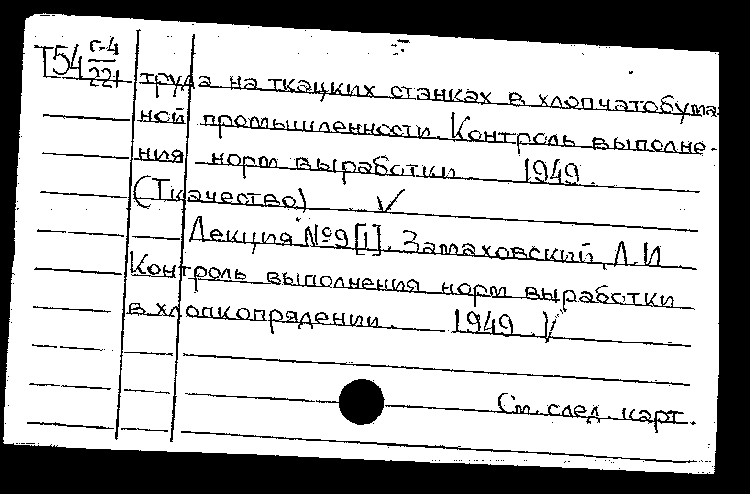 Т54 г-4/221
труда на ткацких станках в хлопчатобумаж-
ной промышленности. Контроль выполне-
ния норм выработки 1949.
(Ткачество) V
Лекция №9[1]. Замаховский, Л.И
Контроль выполнения норм выработки
в хлопкопрядении. 1949. V
См. след. карт.